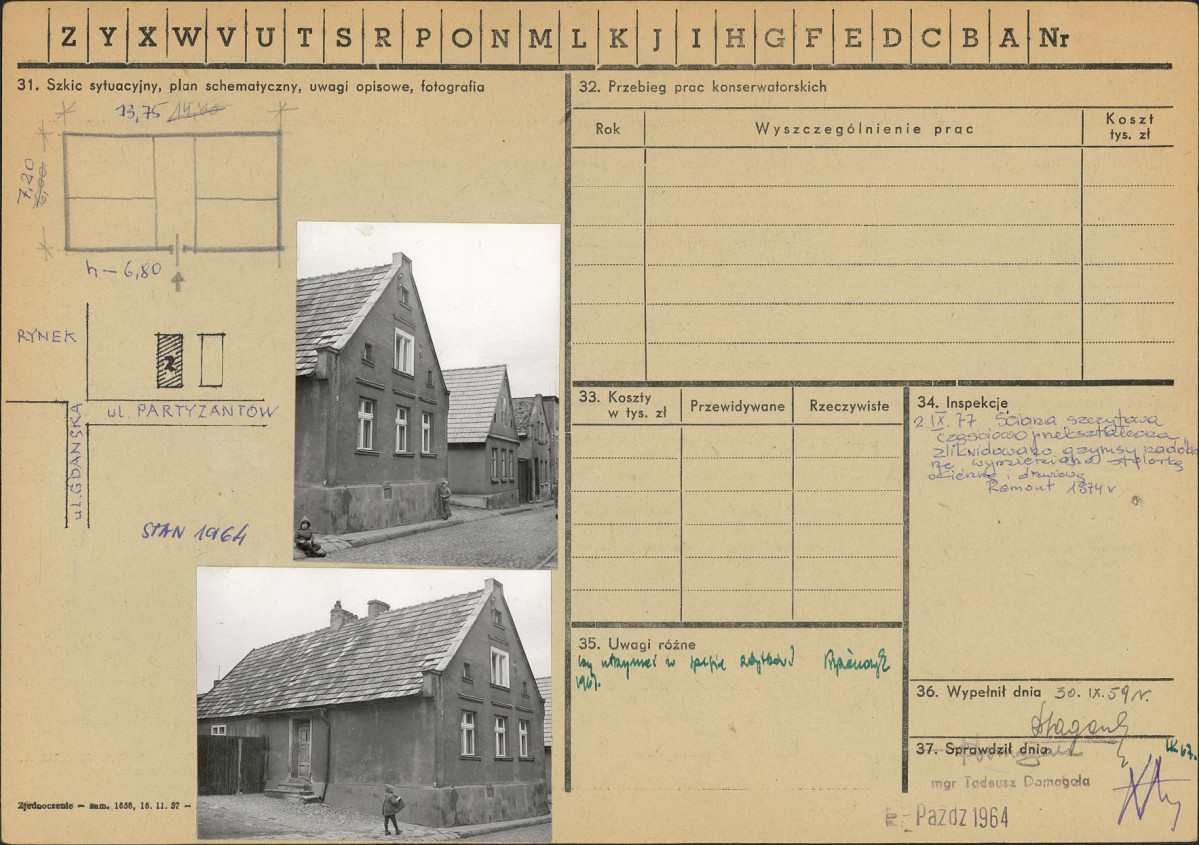 Z Y X W V U T S R P O N M L K J I H G F E D C B A Nr
31. Szkic sytuacyjny, plan schematyczny, uwagi opisowe, fotografia
13,75 14,00
7,20
h – 6,80
RYNEK
2
ul. PARTYZANTÓW
ul. GDAŃSKA
STAN 1964
Zjednoczenie – zam. 1656, 15. 11. 57 –
32. Przebieg prac konserwatorskich
Rok
Wyszczególnienie prac
Koszt
tys. zł
33. Koszty
w tys. zł
Przewidywane
Rzeczywiste
34. Inspekcje
2.IX.77 Ściana szczytowa
częściowo przekształcona
zlikwidowano gzymsy
Remont 1974 r.
35. Uwagi różne
czy utrzymać w spisie zabytków?
1967.
36. Wypełnił dnia 30. IX. 59 r.
37. Sprawdził dnia
IX 67.
mgr Tadeusz Domogała
Paźdz 1964